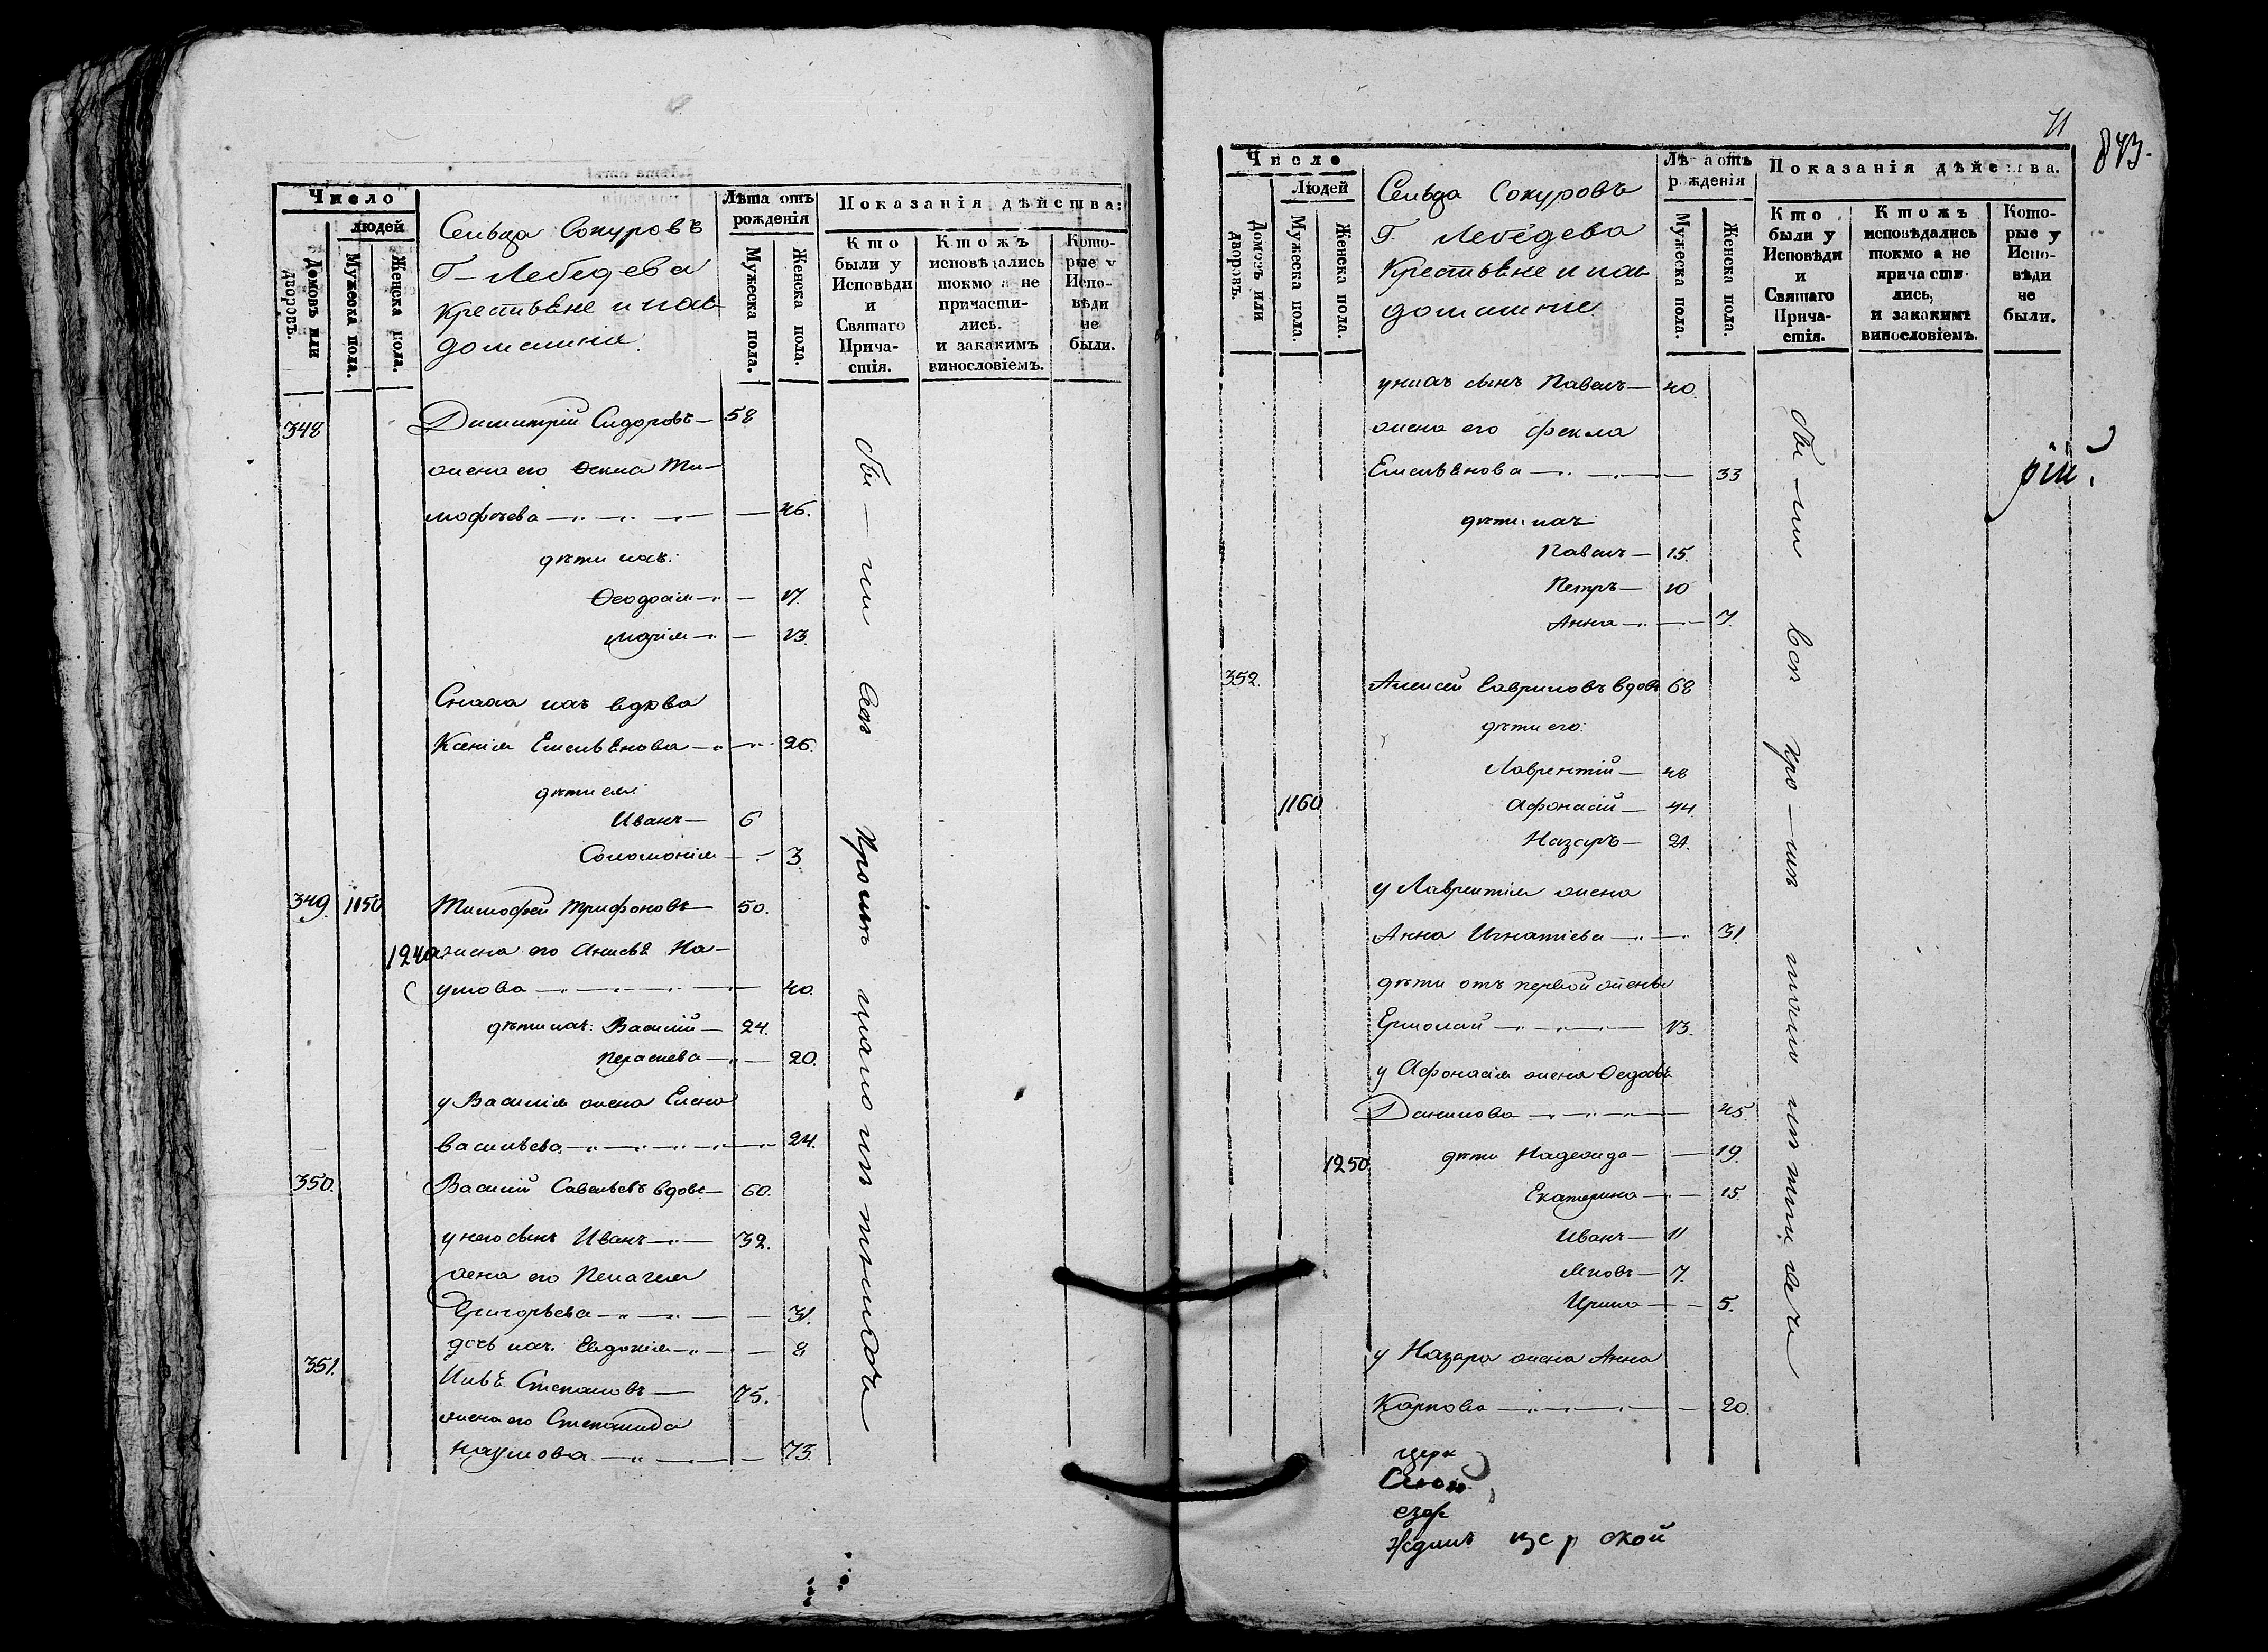 Число
людей
Домовъ или дворовъ.
Мужеска пола.
Женска пола.
Сельца Сокуровъ
Г– Лебедева
Крестьяне и ихъ
домашнія.
Лѣта отъ рожденія
Мужеска пола.
Женска пола.
Показанія дѣйства:
Кто были у Исповѣди и Святаго Прича-стія.
Ктожъ исповѣдались токмо а не причасти-лись. и закакимъ винословіемъ.
Кото-рые у Испо-вѣди не были.
348 Димитрій Сидоровъ — 58
жена его Ти-
мофѣева — 46.
дѣти ихъ:
Ѳеодосія — 17.
Марія — 13.
Сноха ихъ вдова
Ксенія Емельянова — 26.
дѣти ея:
Иванъ — 6
Соломонія — 3
349. 1150 Тимофей Трифоновъ — 50.
1240 жена его Анисья На-
умова — 40.
дѣти ихъ: Василій — 24.
20.
у Василія жена Елена
Васильева — 24.
350. Василій Савельевъ вдовъ — 60.
у него сынъ Иванъ — 32.
жена его Пелагея
Григорьева — 31.
дочь ихъ Евдокія — 8
351. Илья Степановъ — 75.
жена его Степанида
Наумова — 73.
бы – ли всѣ
11
843.
Число
Людей
Домовъ или дворовъ.
Мужеска пола.
Женска пола.
Сельца Сокуровъ
Г. Лебедева
Крестьяне и ихъ
домашніе
Лѣ а отъ р жденія
Мужеска пола.
Женска пола.
Показанія дѣйс ва.
Кто были у Исповѣди и Святаго Прича-стія.
Ктожъ исповѣдались токмо а не прича сти-лись, и закакимъ винословіемъ.
Кото-рые у Испо-вѣди не были.
у нихъ сынъ Павелъ — 40.
жена его Фекла
Емельянова — 33
дѣти ихъ
Павелъ — 15.
Петръ — 10
Анна — 7.
352. Алексей Гавриловъ вдовъ 68
дѣти его:
Лаврентій — 48
1160 Афонасій — 44.
Назаръ — 21.
у Лаврентія жена
Анна Игнатіева — 31.
дѣти отъ первой жены
Ермолай — 13.
у Афонасія жена
Данилова — 45.
1250 дѣти Надежда — 19.
Екатерина — 15.
Иванъ — 11
Яковъ — 7.
Ирина — 5.
у Назара жена Анна
Карпова — 20.
бы – ли всѣ
рій.
церк
ской